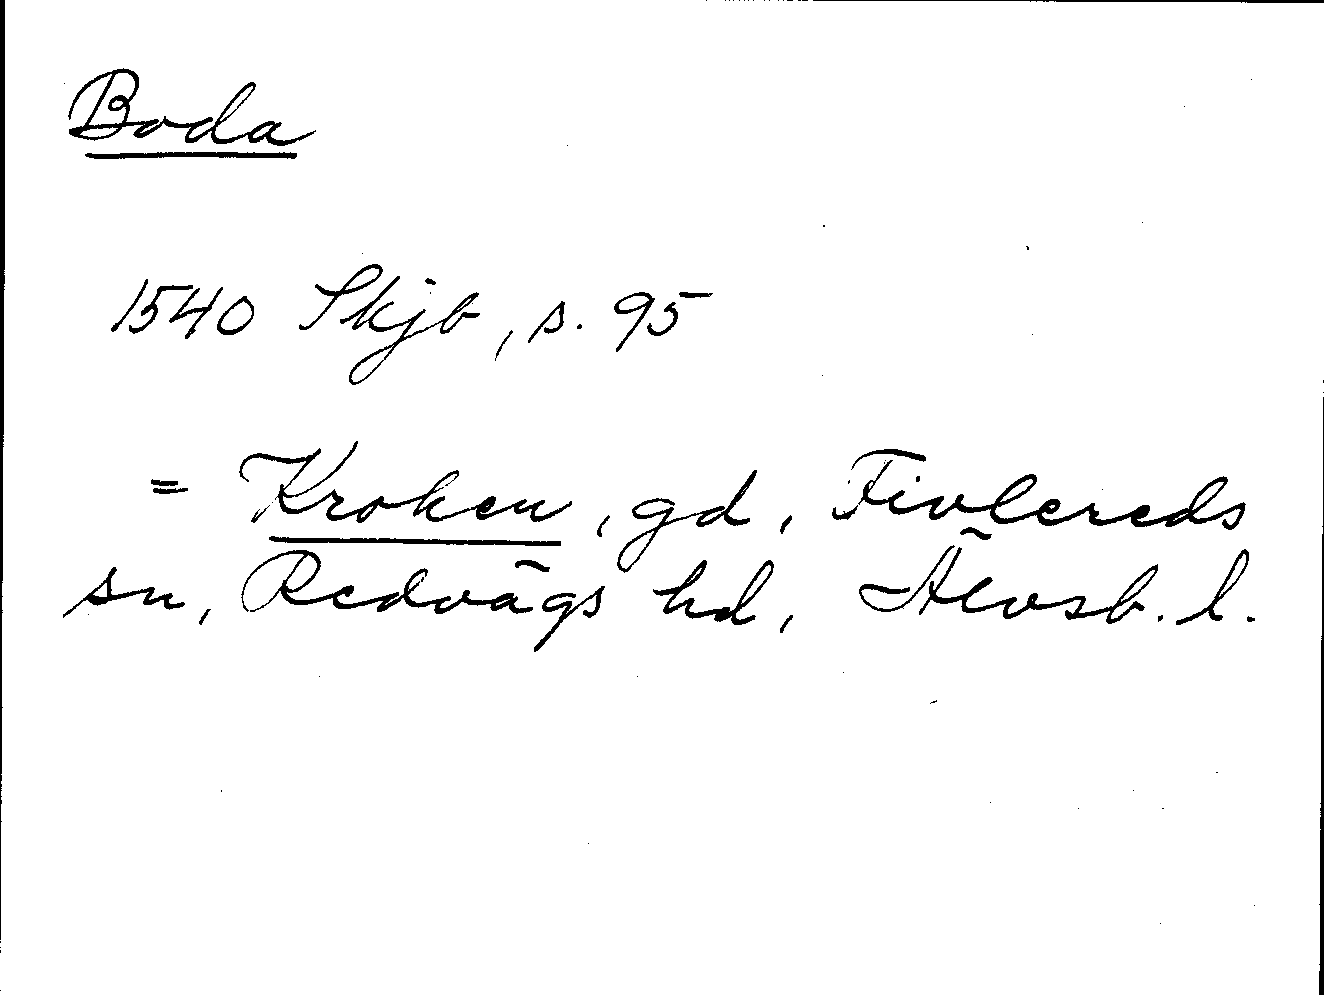 Boda
1540 Skjb, s. 95
= Kroken, gd, Fivlereds
sn, Redvägs hd, Älvsb. l.